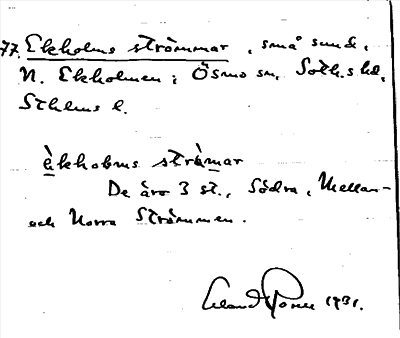 77. Ekholms strömmar, små sund,
N. Ekholmen i Ösmo sn, Soth.s hd,
Sthlms l.
èkholms stròmar
De äro 3 st., Södra, Mellan-
och Norra Strömmen.
1931.